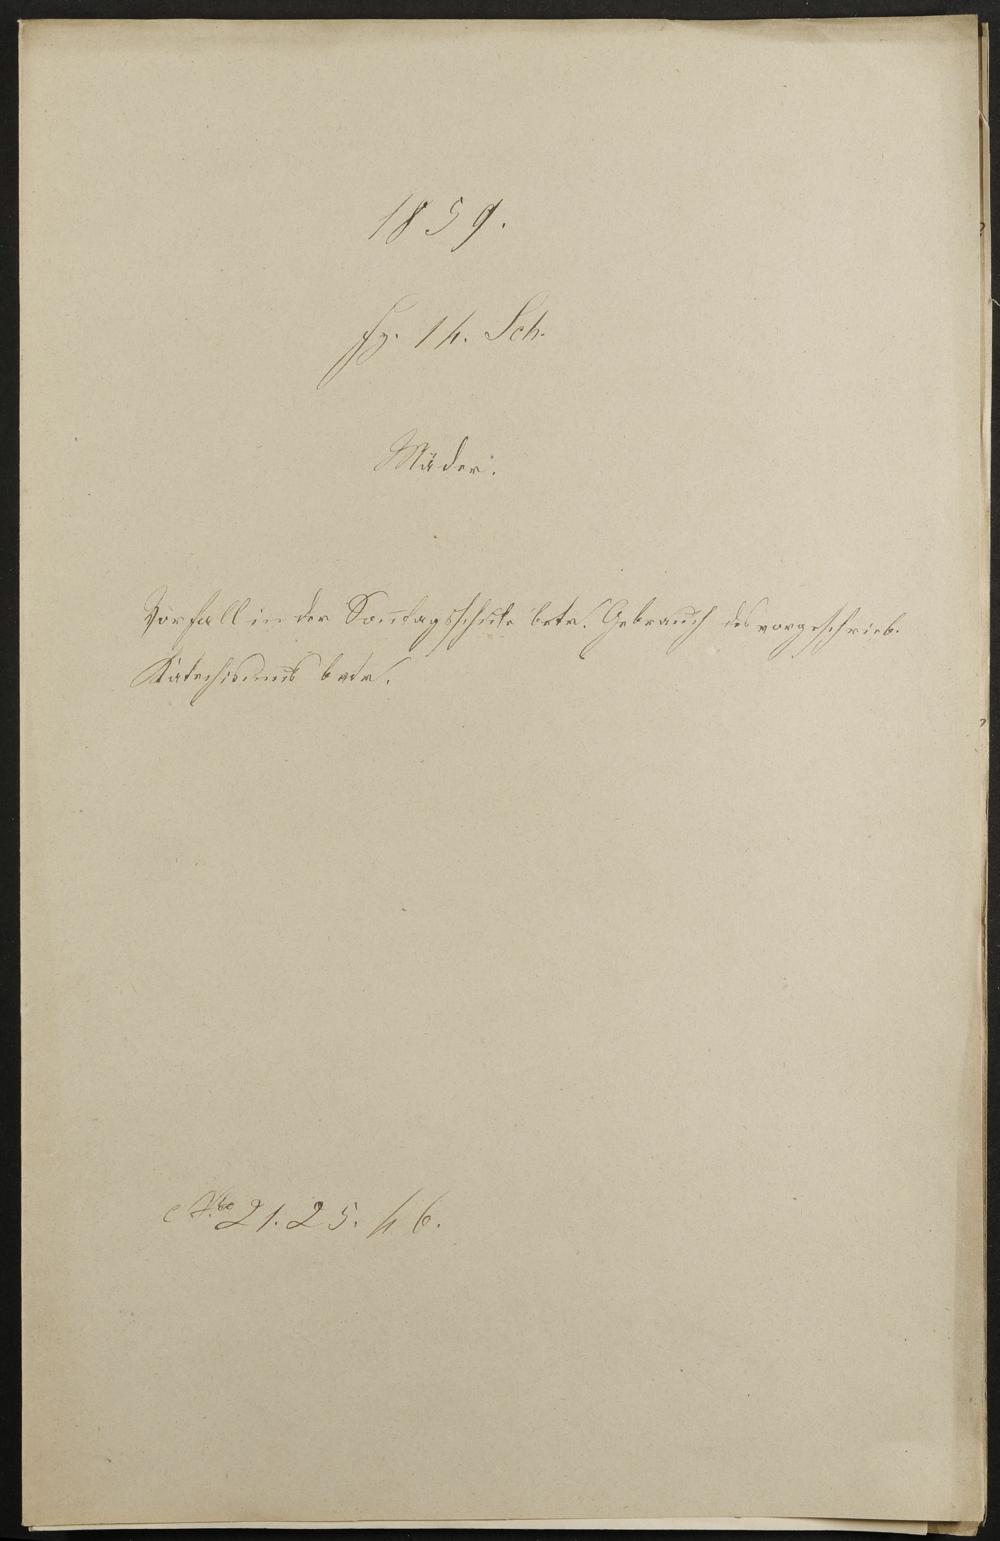 1859.
Fz. 14. Sch.
Mäder.
Vorfall in der Sontagsschule betr. Gebrauch des vorgeschrieb.
Katechismus betr.
Nro 21. 25. 46.